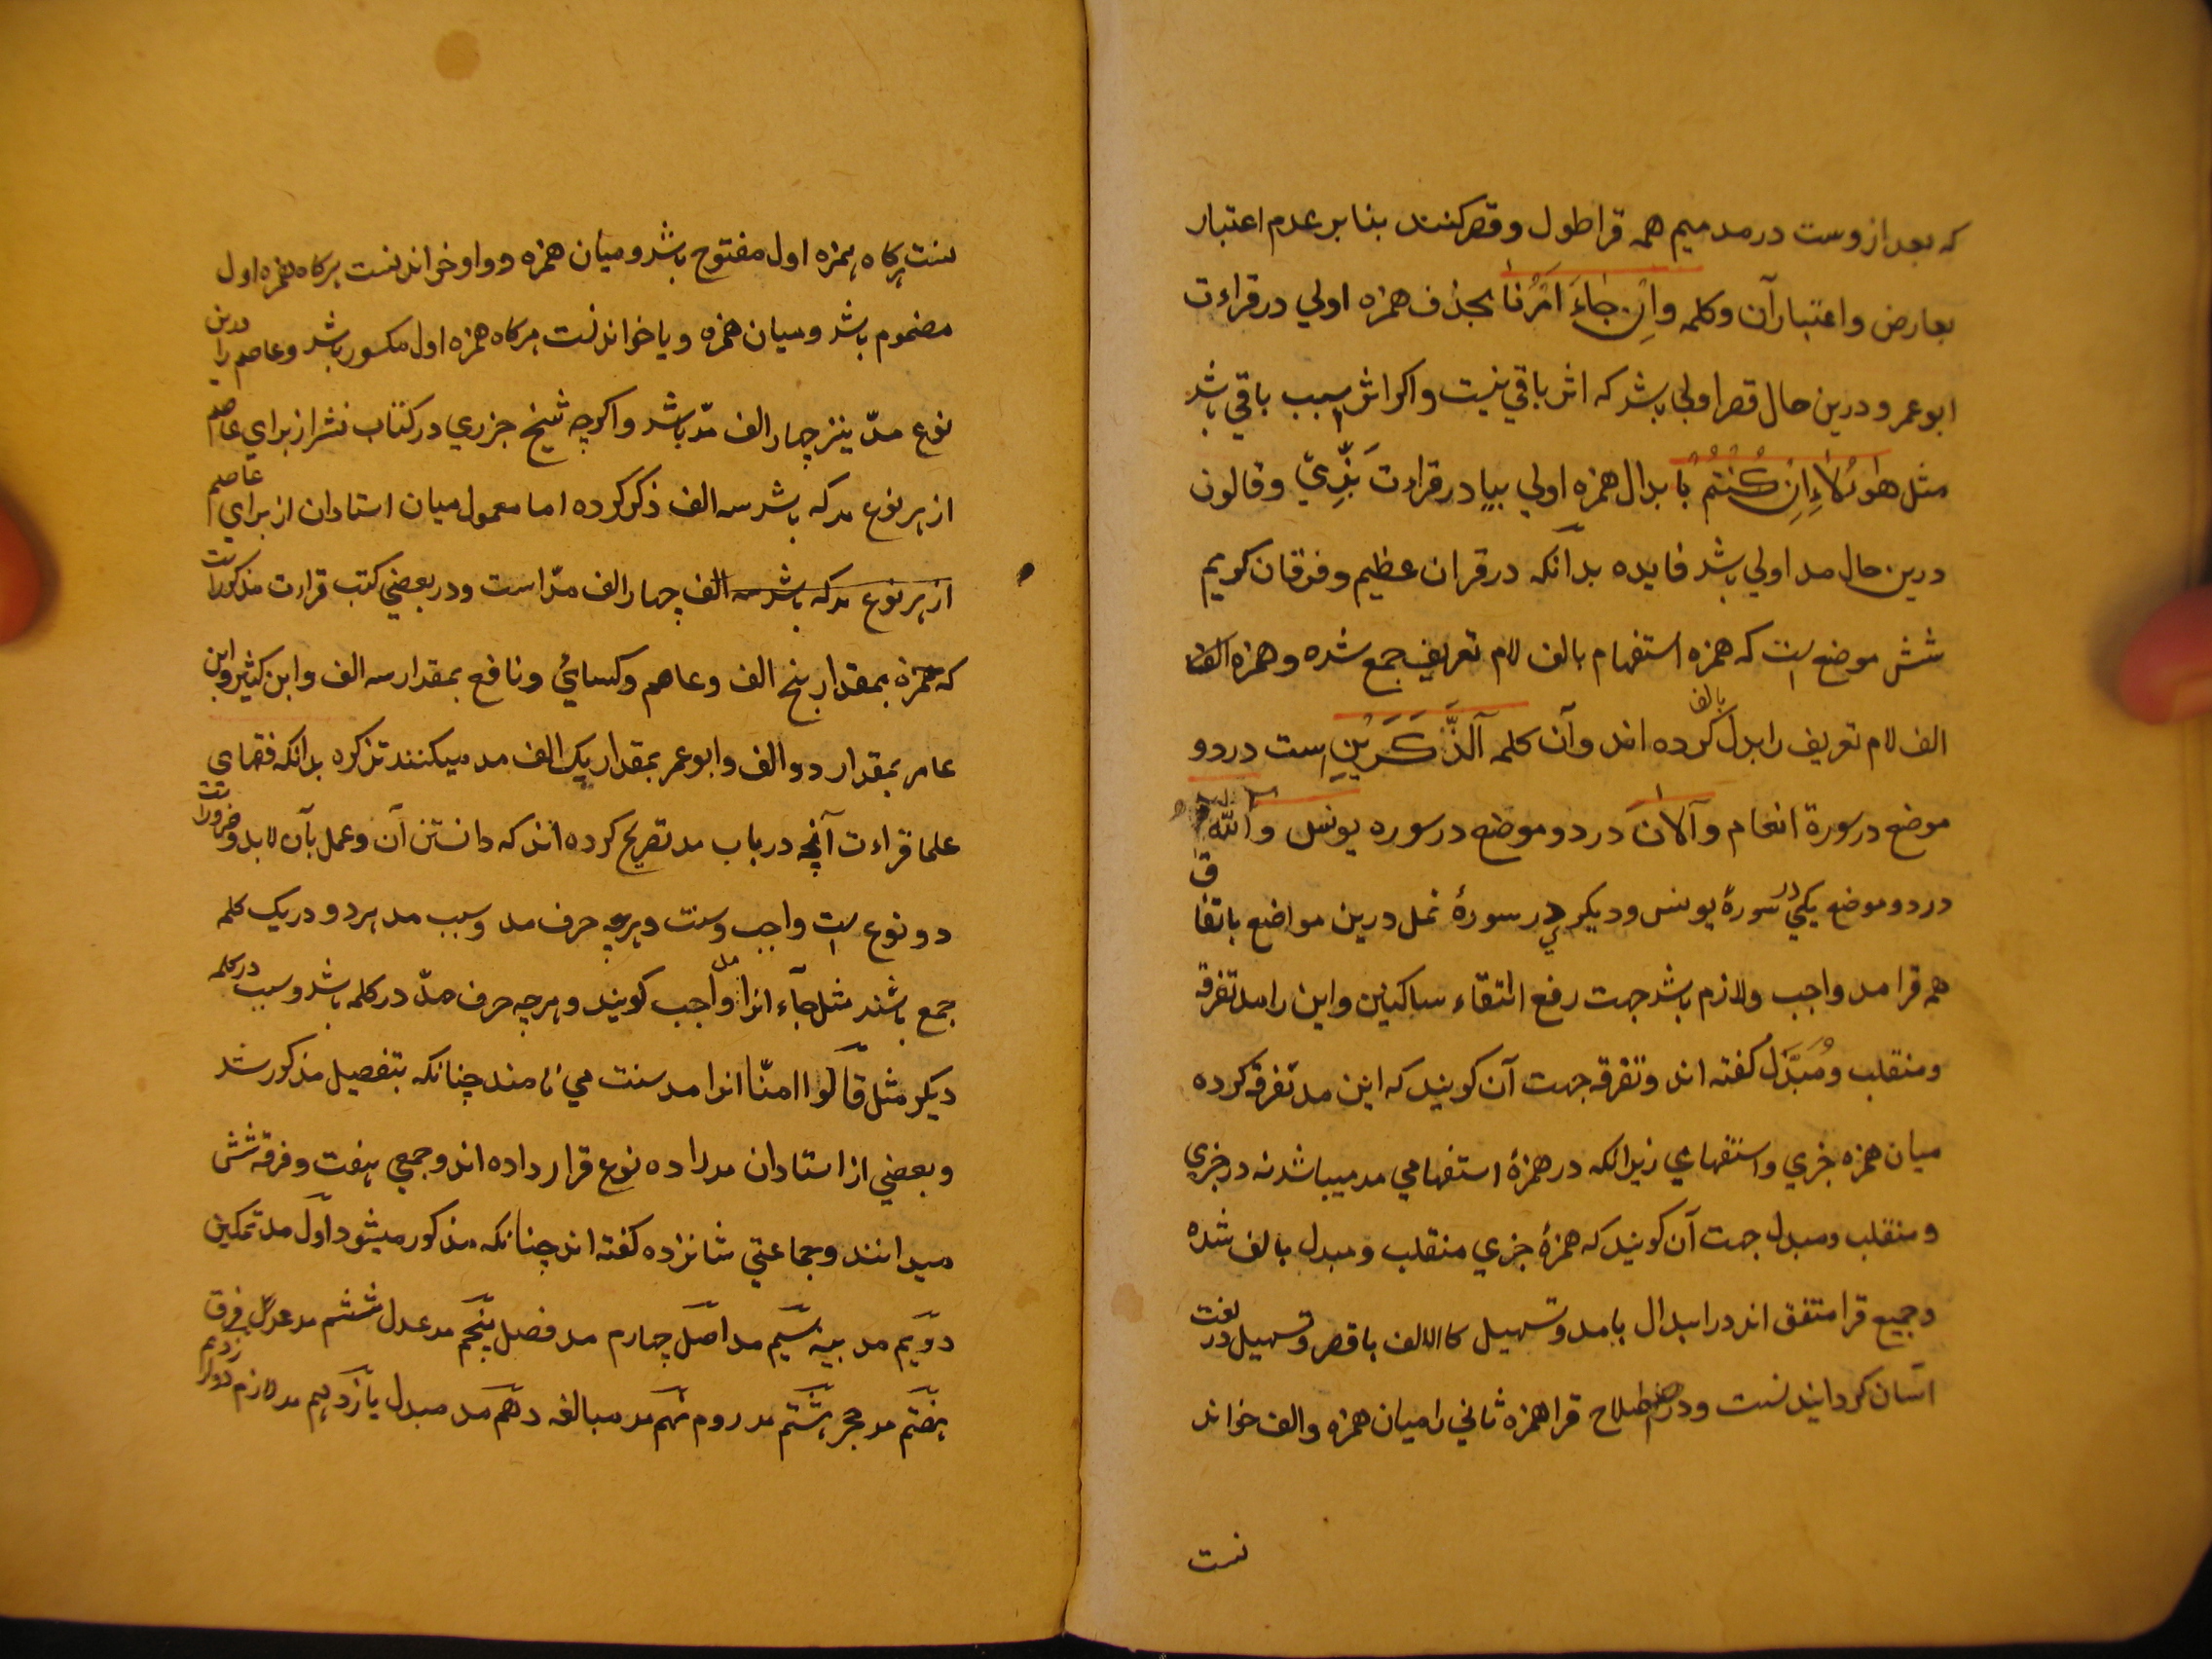 که بعد از وست در مد میم همه قرا طول و قصر کنند بنا بر عدم اعتبار
بعارض و اعتبار آن و کلمه وَاِنْ جَاءَ اَمْرُنَا بحذف همزه اولي در قراءت
ابو عمر و درین حال قصر اولي باشد که اثر باقي نیست و اکر اثر سبب باقي باشد
مثل هٰؤُلَاءِ اِنْ كُنْتُمْ با بدال همزه اولي بیا در قراءت بَزِّيّ و قالون
درین حال مد اولي باشد فایده بدآنکه در قران عظیم و فرقان کریم
شش موضع است که همزه استفهام بالف لام تعریف جمع شده و همزه الف
الف لام تعریف را بدل بالف کرده اند و آن کلمه آلذَّكَرَيْنِ است در دو
موضع در سورة انعام و آلآنَ در دو موضع در سوره یونس و آللّٰه
در دو موضع یکي در سورۀ یونس و دیکر در سورۀ نمل درین مواضع باتفاق
همه قرا مد واجب و لازم باشد جهت رفع التقاء ساکنین و این را مد تفرقه
و منقلب و مُبَدَّلْ کفته اند و تفرقه جهت آن کویند که این مد تفرقه کرده
میان همزه خبري و استفهامي زیرانکه در همزۀ استفهامي مد میباشد نه در خبري
و منقلب و مبدل جهت آن کویند که همزۀ خبري منقلب و مبدل بالف شده
و جمیع قرا متفق اند در ابدال بامد و تسهیل کاالالف با قصر و تسهیل در لغت
آسان کردانیدنست و در اصطلاح قرا همزه ثاني را میان همزه و الف خواند
نست
نست هرکاه همزه اول مفتوح باشد و میان همزه و واو خواندنست هرکاه همزه اول
مضموم باشد و میان همزه و یا خواندنست هرکاه همزه اول مکسور باشد و عاصم را درین
نوع مدّ نیز چهار الف مدّ باشد و اکرچه شیخ جزري در کتاب نشر از براي عاصم
از هر نوع مد که باشد سه الف ذکر کرده اما معمول میان استادان از براي عاصم
از هر نوع مد که باشد سه الف چهار الف مدّ است و در بعضي کتب قراءت مذکور است
که حمزه بمقدار پنج الف و عاصم و کسائي و نافع بمقدار سه الف و ابن کثیر و ابن
عامر بمقدار دو الف و ابو عمر بمقدار یک الف مد میکنند تذکره بدانکه فقهاي
علما قراءت آنچه در باب مد تصریح کرده اند که دانستن آن و عمل بآن لابد و ضرور است
دو نوع است واجب و سنت و هرچه حرف مد و سبب مد هر دو در یک کلمه
جمع باشند مثل جآء انرا مد واجب کویند و هرچه حرف مدّ در کلمه باشد و سبب در کلمه
دیکر مثل قالوا امنّا انرا مد سنت مي نامند چنانکه بتفصیل مذکور شد
و بعضي از استادان مد را ده نوع قرار داده اند و جمعي هفت و فرقه شش
میدانند و جماعتي شانزده کفته اند چنانکه مذکور میشود اول مد تمکین
دویم مد بینه سیم مد اصل چهارم مد فصل پنجم مد عدل ششم مد عدل فرق
هفتم مد حجر هشتم مد روم نهم مد مبالغه دهم مد مبدل یازدهم مد لازم